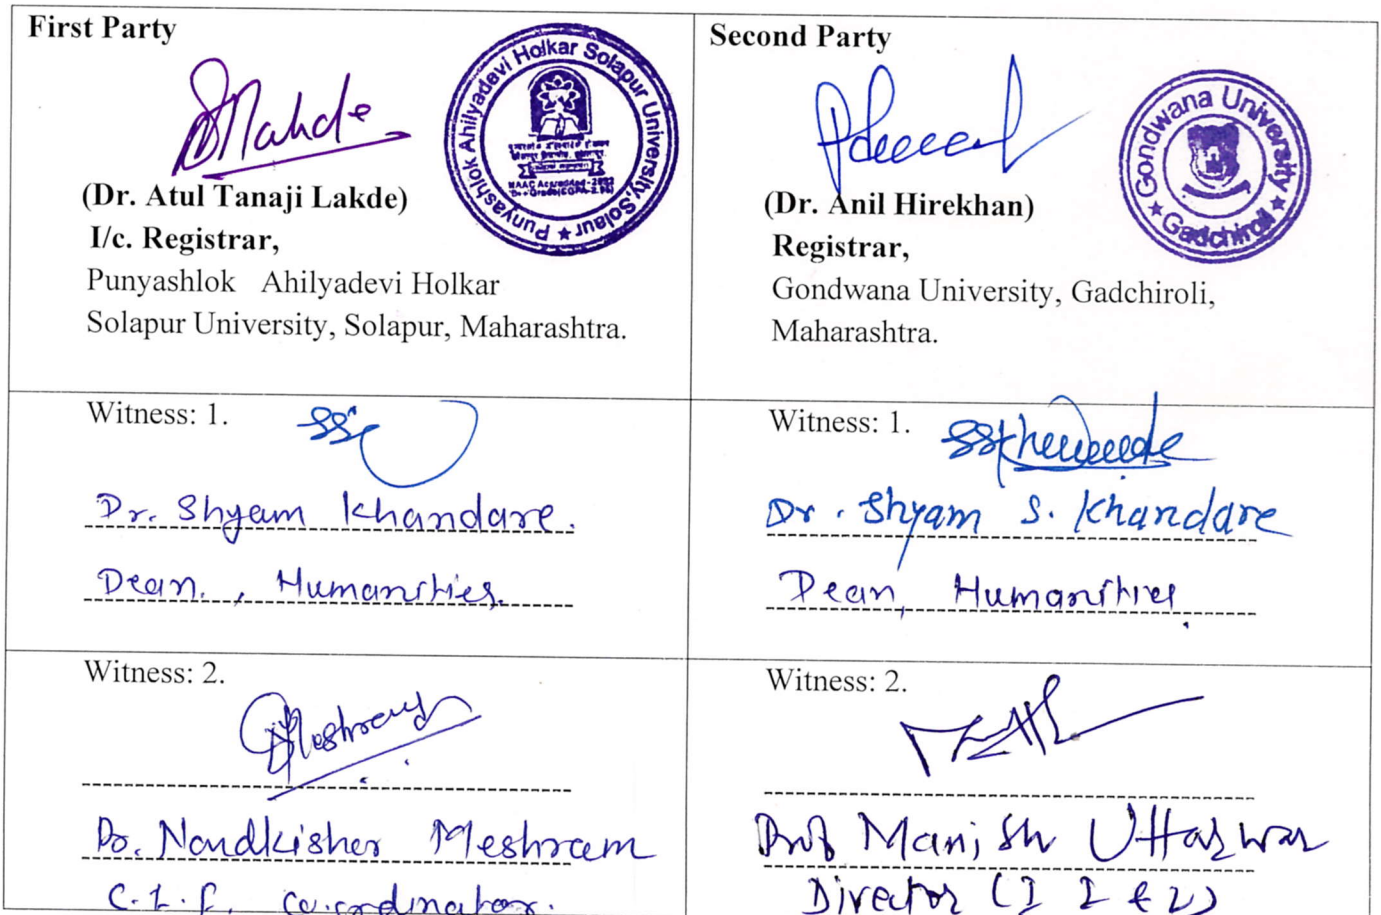 First Party
(Dr. Atul Tanaji Lakde)
I/c. Registrar,
Punyashlok Ahilyadevi Holkar
Solapur University, Solapur, Maharashtra.
Punyashlok Ahilyadevi Holkar Solapur University, Solapur
Second Party
(Dr. Anil Hirekhan)
Registrar,
Gondwana University, Gadchiroli,
Maharashtra.
Gondwana University
Gadchiroli
Witness: 1.
Dr. Shyam Khandare.
Dean., Humanities.
Witness: 1.
Dr. Shyam S. Khandare
Dean, Humanities
Witness: 2.
Meshram
Dr. Nandkishor Meshram
C.I.F. Co.ordinator.
Witness: 2.
Prof Manish Uttarwar
Director (I I & L)